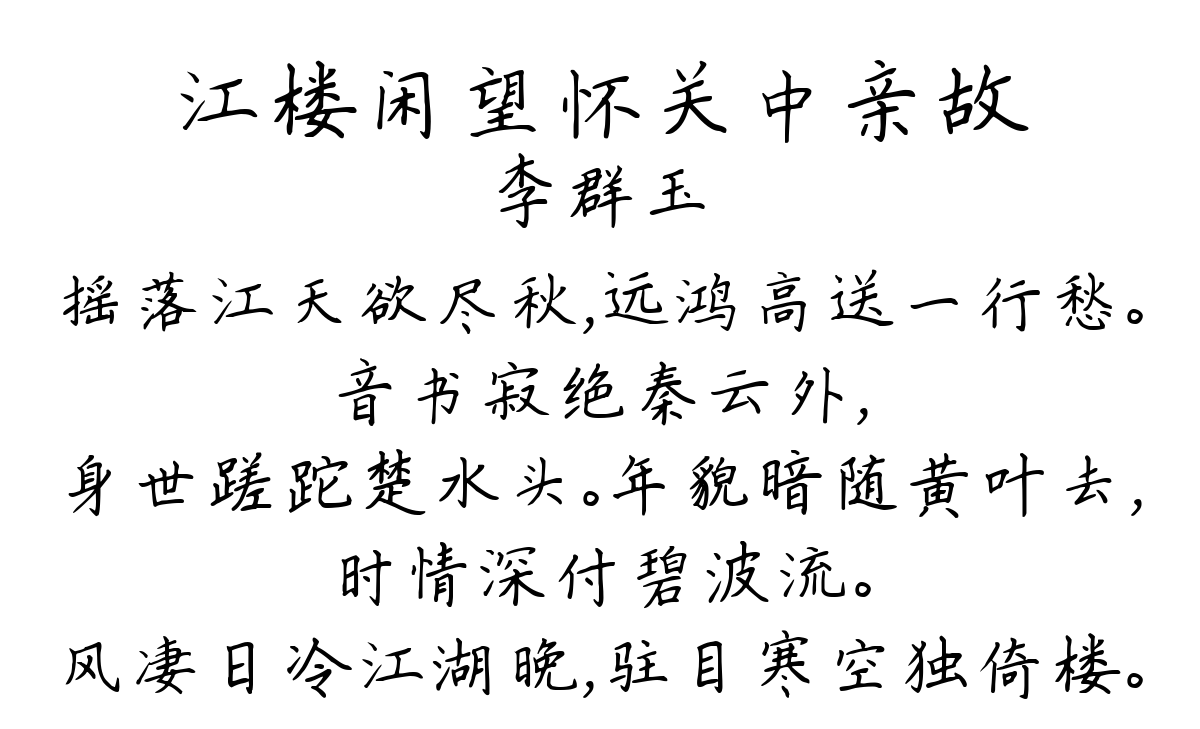 江楼闲望怀关中亲故
李群玉
摇落江天欲尽秋,远鸿高送一行愁。
音书寂绝秦云外,
身世蹉跎楚水头。年貌暗随黄叶去,
时情深付碧波流。
风凄日冷江湖晚,驻目寒空独倚楼。